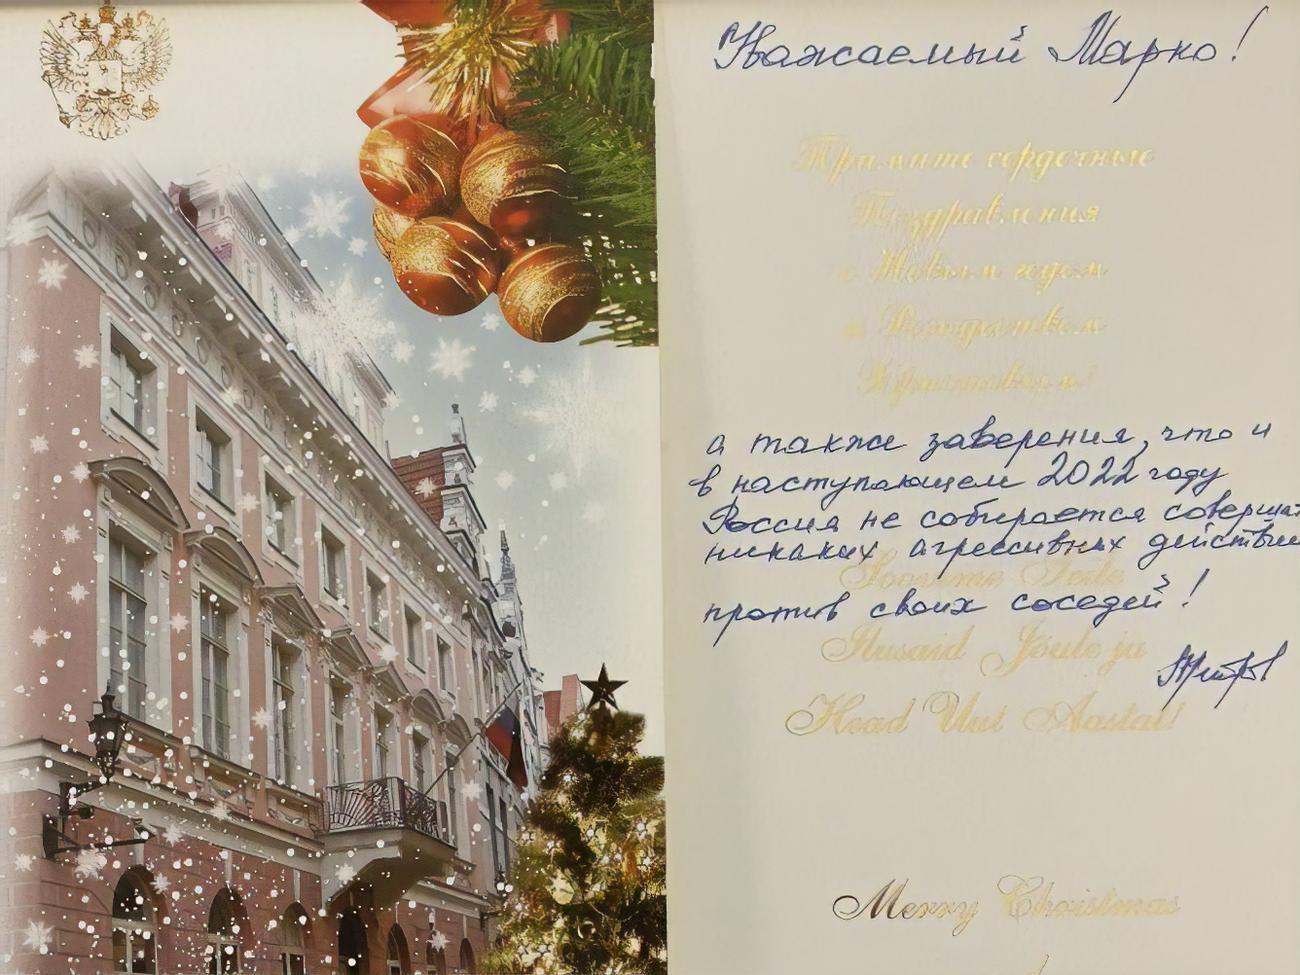 Уважаемый Марко!
Примите сердечные
Поздравления
с Новым годом
и Рождеством
Христовым!
а также заверения, что и
в наступающем 2022 году
Россия не собирается совершат
никаких агрессивных действи
против своих соседей!
Soovime Teile
Ilusaid Jõule ja
Head Uut Aastat!
Merry Christmas